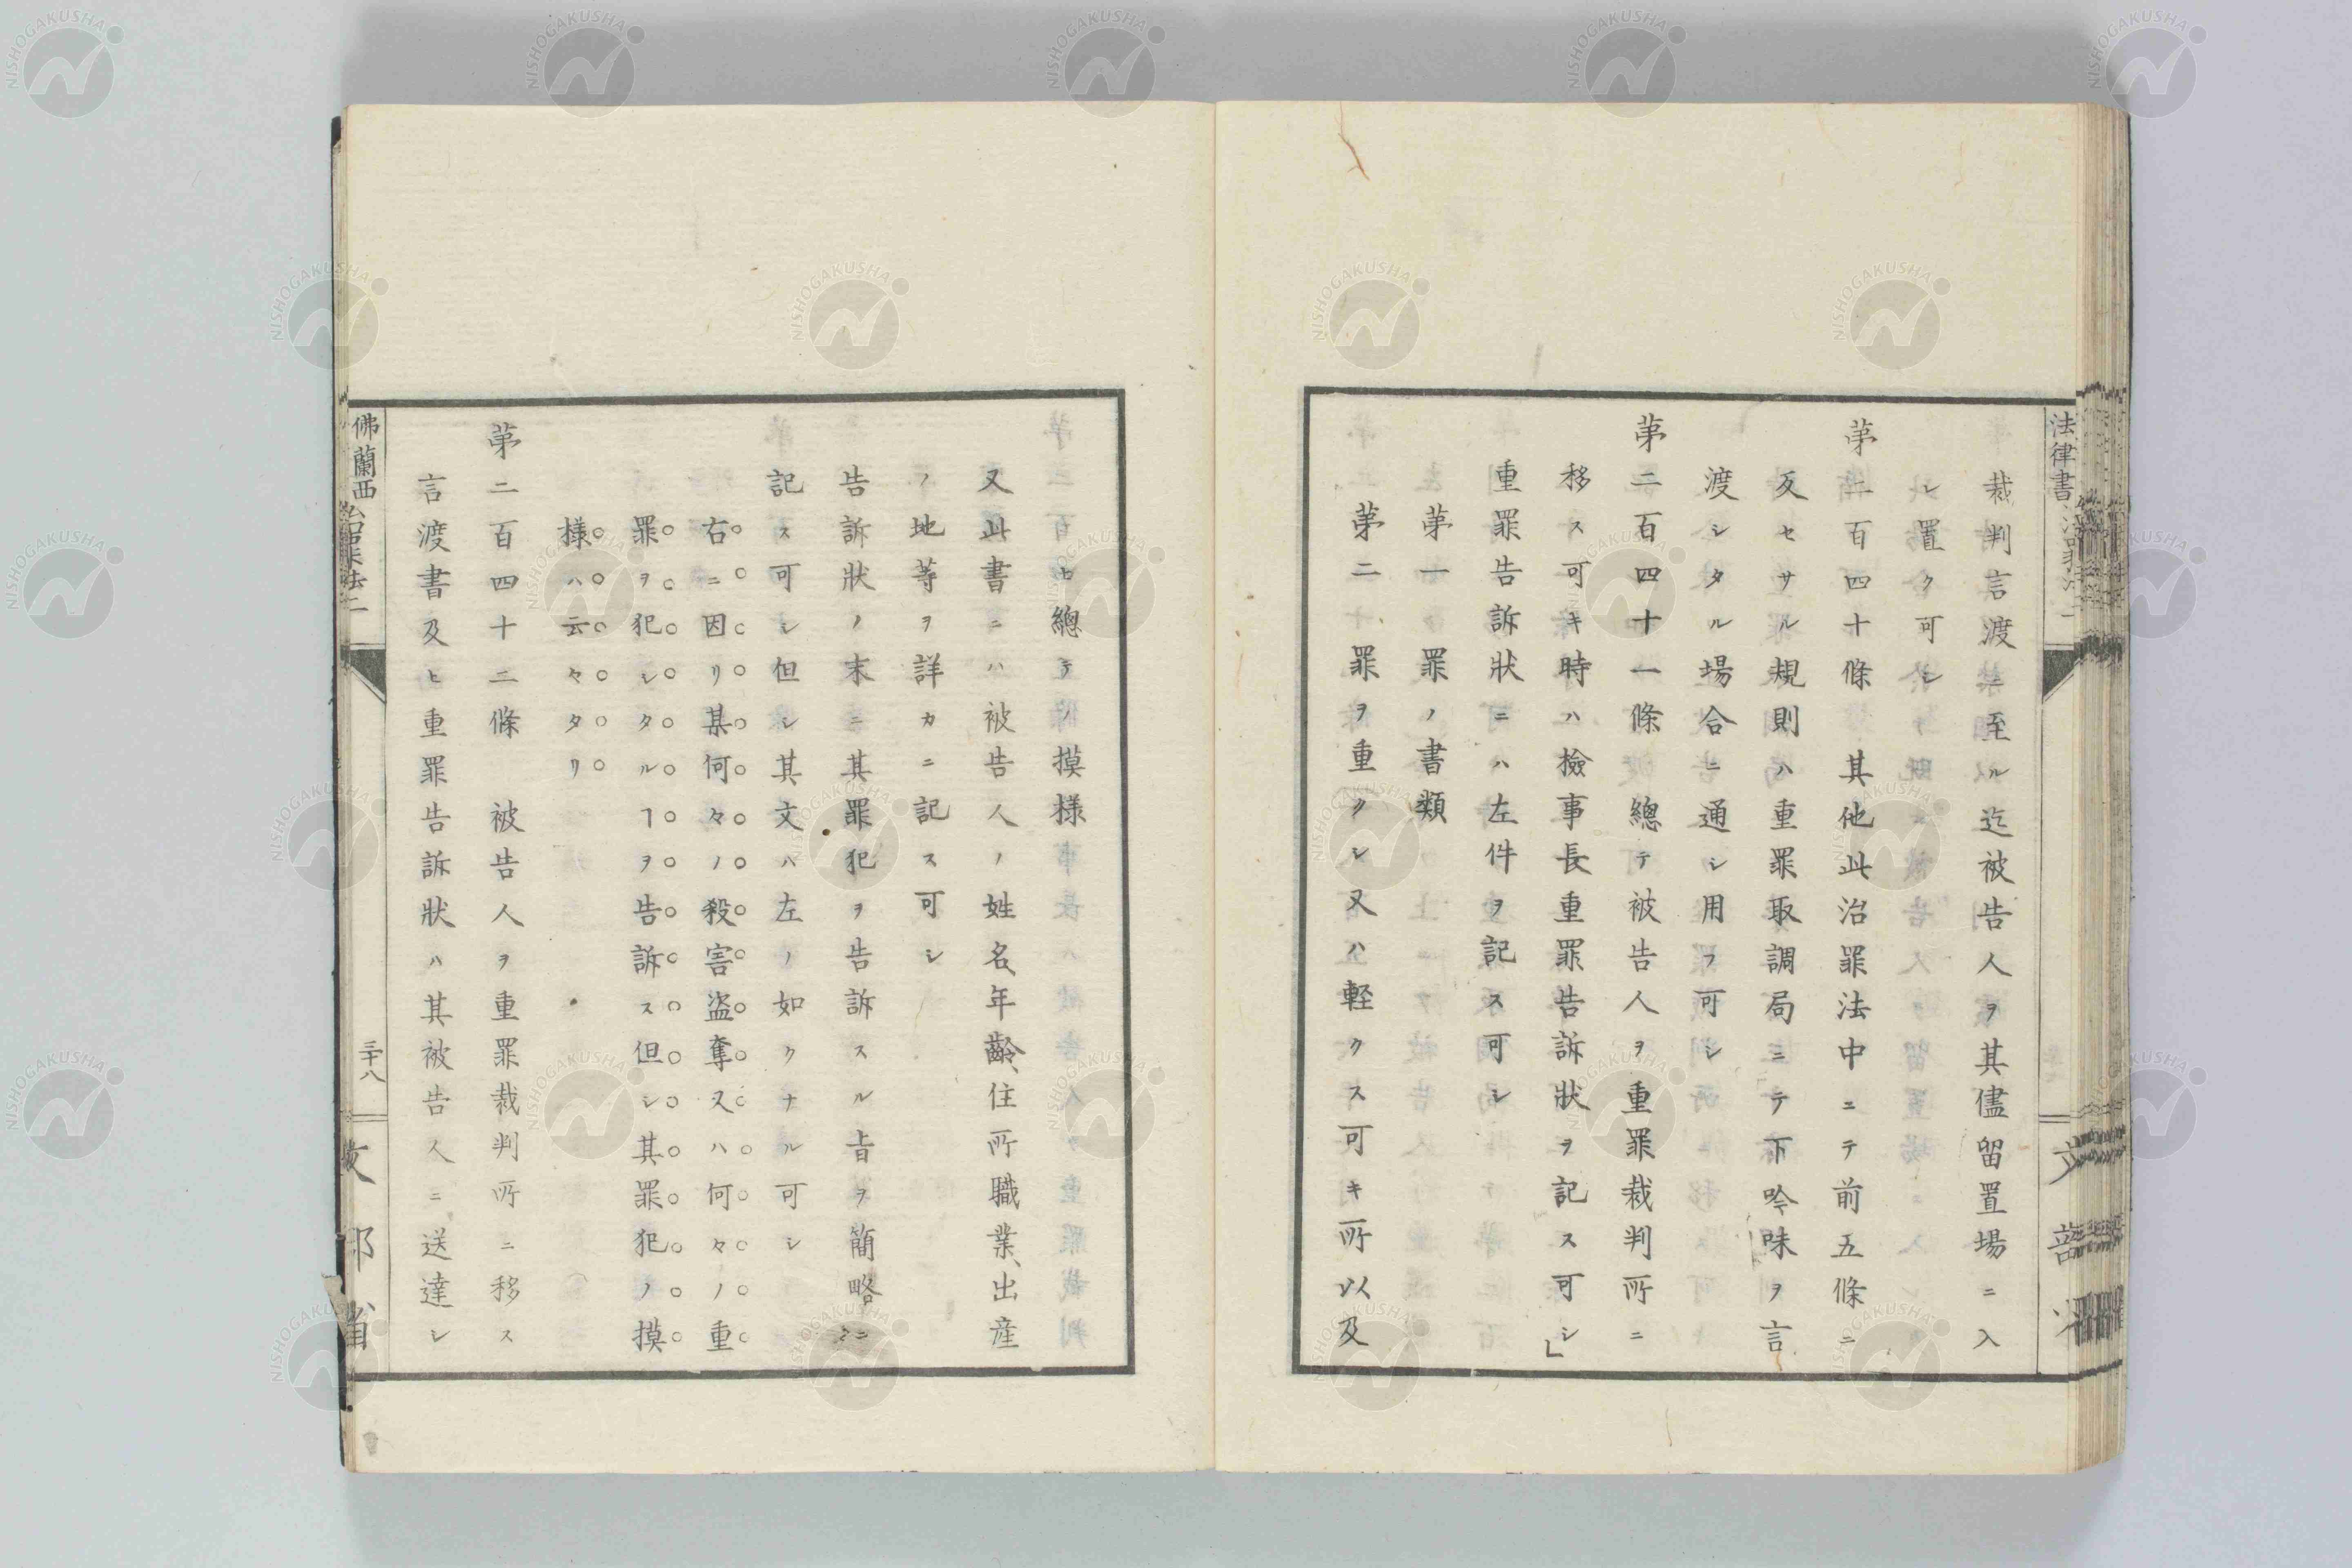 法律書
裁判言渡ニ至ル迄被告人ヲ其儘留置場ニ入
レ置ク可シ
第二百四十條 其他此治罪法中ニテ前五條ニ
反セサル規則ハ重罪取調局ニテ下吟味ヲ言
渡シタル場合ニ通シ用フ可シ
第二百四十一條 總テ被告人ヲ重罪裁判所ニ
移ス可キ時ハ檢事長重罪告訴狀ヲ記ス可シ」
重罪告訴狀ニハ左件ヲ記ス可シ
第一 罪ノ書類
第二 罪ヲ重クシ又ハ軽クス可キ所以及
ヒ總テノ摸様
又此書ニハ被告人ノ姓名年齡、住所職業、出産
ノ地等ヲ詳カニ記ス可シ
告訴狀ノ末ニ其罪犯ヲ告訴スル旨ヲ簡略ニ
記ス可シ但シ其文ハ左ノ如クナル可シ
右ニ因リ某何々ノ殺害盗奪又ハ何々ノ重
罪ヲ犯シタルヿヲ告訴ス但シ其罪犯ノ摸
様ハ云々タリ
第二百四十二條 被告人ヲ重罪裁判所ニ移ス
言渡書及ヒ重罪告訴狀ハ其被告人ニ送達シ
佛蘭西治罪法二
三十八
文部省